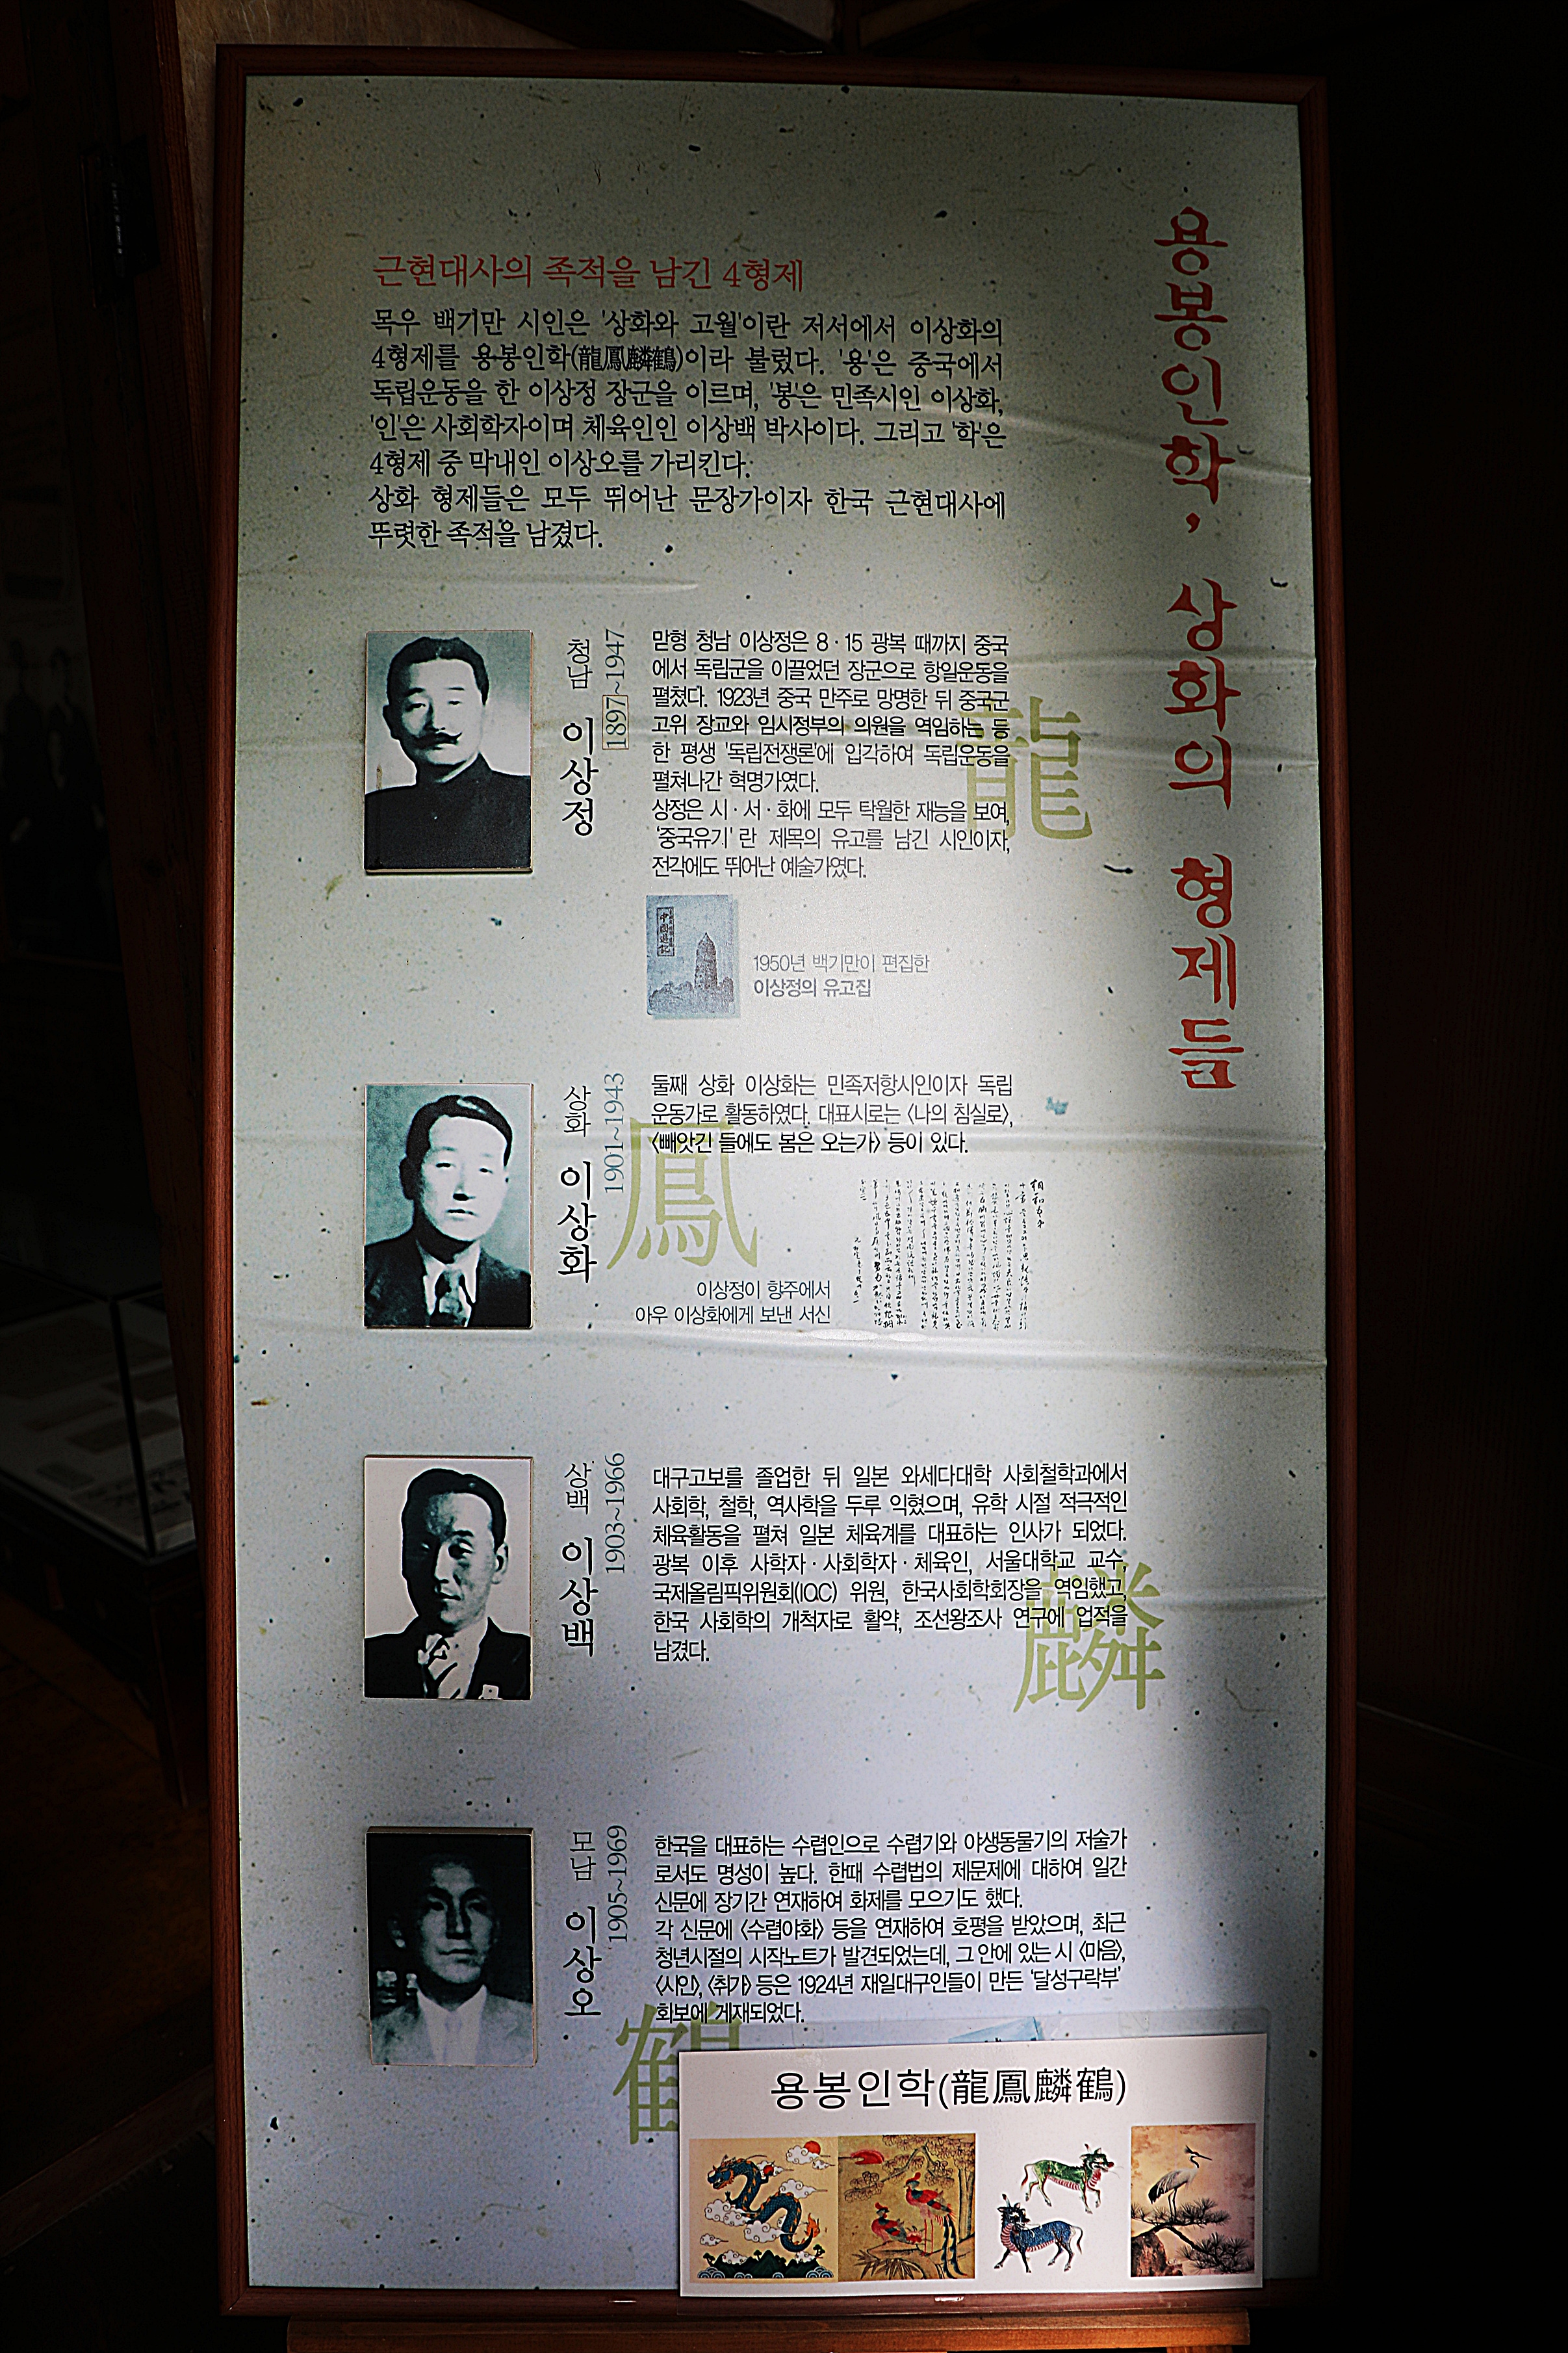 용봉인학, 상화의 형제들
근현대사의 족적을 남긴 4형제
목우 백기만 시인은 '상화와 고월'이란 저서에서 이상화의
4형제를 용봉인학(龍鳳麟鶴)이라 불렀다. '용'은 중국에서
독립운동을 한 이상정 장군을 이르며, '봉'은 민족시인 이상화,
'인'은 사회학자이며 체육인인 이상백 박사이다. 그리고 '학'은
4형제 중 막내인 이상오를 가리킨다.
상화 형제들은 모두 뛰어난 문장가이자 한국 근현대사에
뚜렷한 족적을 남겼다.
청남 이상정
1897~1947
맏형 청남 이상정은 8·15 광복 때까지 중국
에서 독립군을 이끌었던 장군으로 항일운동을
펼쳤다. 1923년 중국 만주로 망명한 뒤 중국군
고위 장교와 임시정부의 의원을 역임하는 등
한 평생 '독립전쟁론'에 입각하여 독립운동을
펼쳐나간 혁명가였다.
상정은 시·서·화에 모두 탁월한 재능을 보여,
'중국유기' 란 제목의 유고를 남긴 시인이자,
전각에도 뛰어난 예술가였다.
龍
中國遊記
1950년 백기만이 편집한
이상정의 유고집
상화 이상화
1901~1943
둘째 상화 이상화는 민족저항시인이자 독립
운동가로 활동하였다. 대표시로는 〈나의 침실로〉,
〈빼앗긴 들에도 봄은 오는가〉 등이 있다.
鳳
이상정이 항주에서
아우 이상화에게 보낸 서신
상백 이상백
1903~1966
대구고보를 졸업한 뒤 일본 와세다대학 사회철학과에서
사회학, 철학, 역사학을 두루 익혔으며, 유학 시절 적극적인
체육활동을 펼쳐 일본 체육계를 대표하는 인사가 되었다.
광복 이후 사학자·사회학자·체육인, 서울대학교 교수,
국제올림픽위원회(IOC) 위원, 한국사회학회장을 역임했고,
한국 사회학의 개척자로 활약, 조선왕조사 연구에 업적을
남겼다.
麟
모남 이상오
1905~1969
한국을 대표하는 수렵인으로 수렵기와 야생동물기의 저술가
로서도 명성이 높다. 한때 수렵법의 제문제에 대하여 일간
신문에 장기간 연재하여 화제를 모으기도 했다.
각 신문에 〈수렵야화〉 등을 연재하여 호평을 받았으며, 최근
청년시절의 시작노트가 발견되었는데, 그 안에 있는 시 〈마음〉,
〈시인〉, 〈취가〉 등은 1924년 재일대구인들이 만든 '달성구락부'
회보에 게재되었다.
鶴
용봉인학(龍鳳麟鶴)